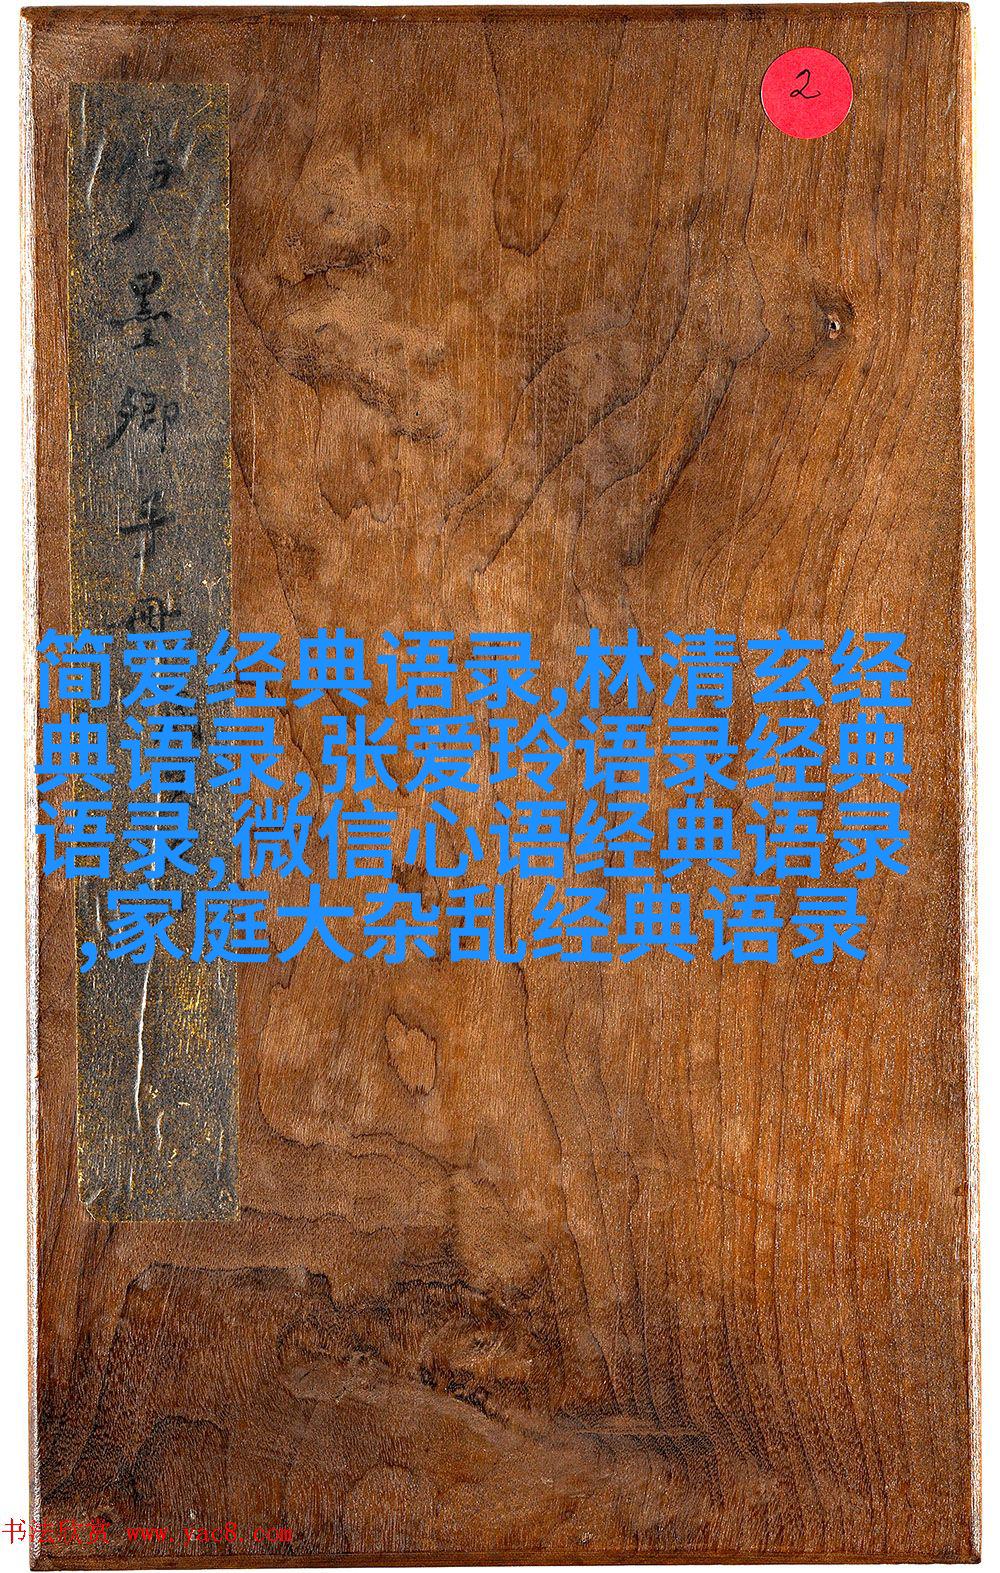 2
墨卿手冊
简爱经典语录,林清玄经
典语录,张爱玲语录经典
语录,微信心语经典语录
,家庭大杂乱经典语录
书法欣赏 www.yac8.com